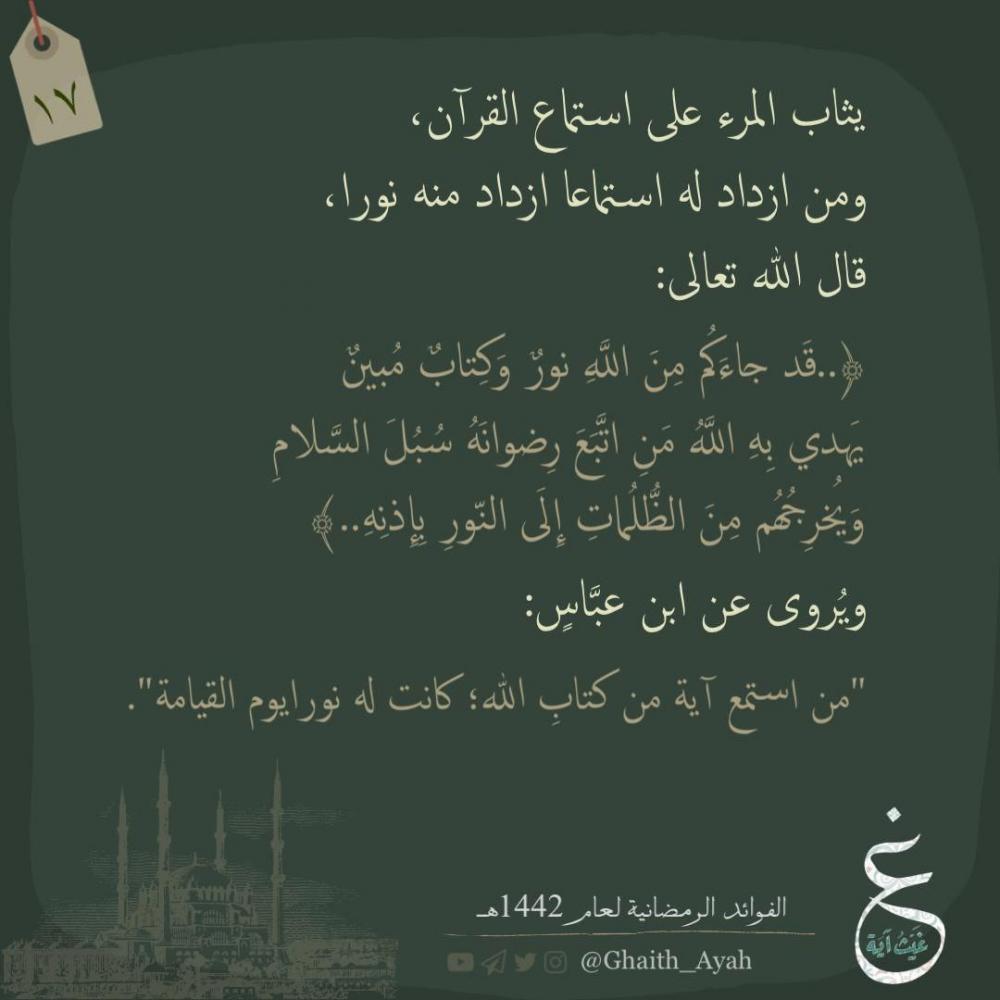 ١٧
يثاب المرء على استماع القرآن،
ومن ازداد له استماعا ازداد منه نورا،
قال الله تعالى:
﴿..قَد جاءَكُم مِنَ اللَّهِ نورٌ وَكِتابٌ مُبينٌ
يَهدي بِهِ اللَّهُ مَنِ اتَّبَعَ رِضوانَهُ سُبُلَ السَّلامِ
وَيُخرِجُهُم مِنَ الظُّلُماتِ إِلَى النّورِ بِإِذنِهِ..﴾
ويُروى عن ابن عبَّاسٍ:
"من استمع آية من كتابِ الله؛ كانت له نورايوم القيامة".
الفوائد الرمضانية لعام 1442هـ
@Ghaith_Ayah
غ
غَيْثُ آيَة